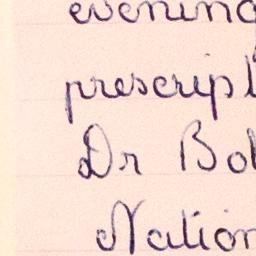 evening
prescript
Dr Bol
Nation